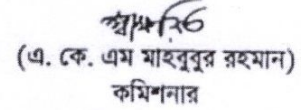 স্বাক্ষরিত
(এ. কে. এম মাহবুবুর রহমান)
কমিশনার